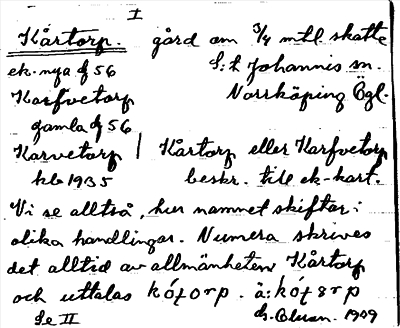 I
Kårtorp. gård om 3/4 mtl skatte
ek. nya af 56 S:t Johannis sn.
Karfvetorp Norrköping Ögl.
gamla af 56
Karvetorp | Kårtorp eller Karfvetorp
kb 1935 beskr. till ek-kart.
Vi se alltså, hur namnet skiftar i
olika handlingar. Numera skrives
det alltid av allmänheten Kårtorp
och uttalas
Se II 1909